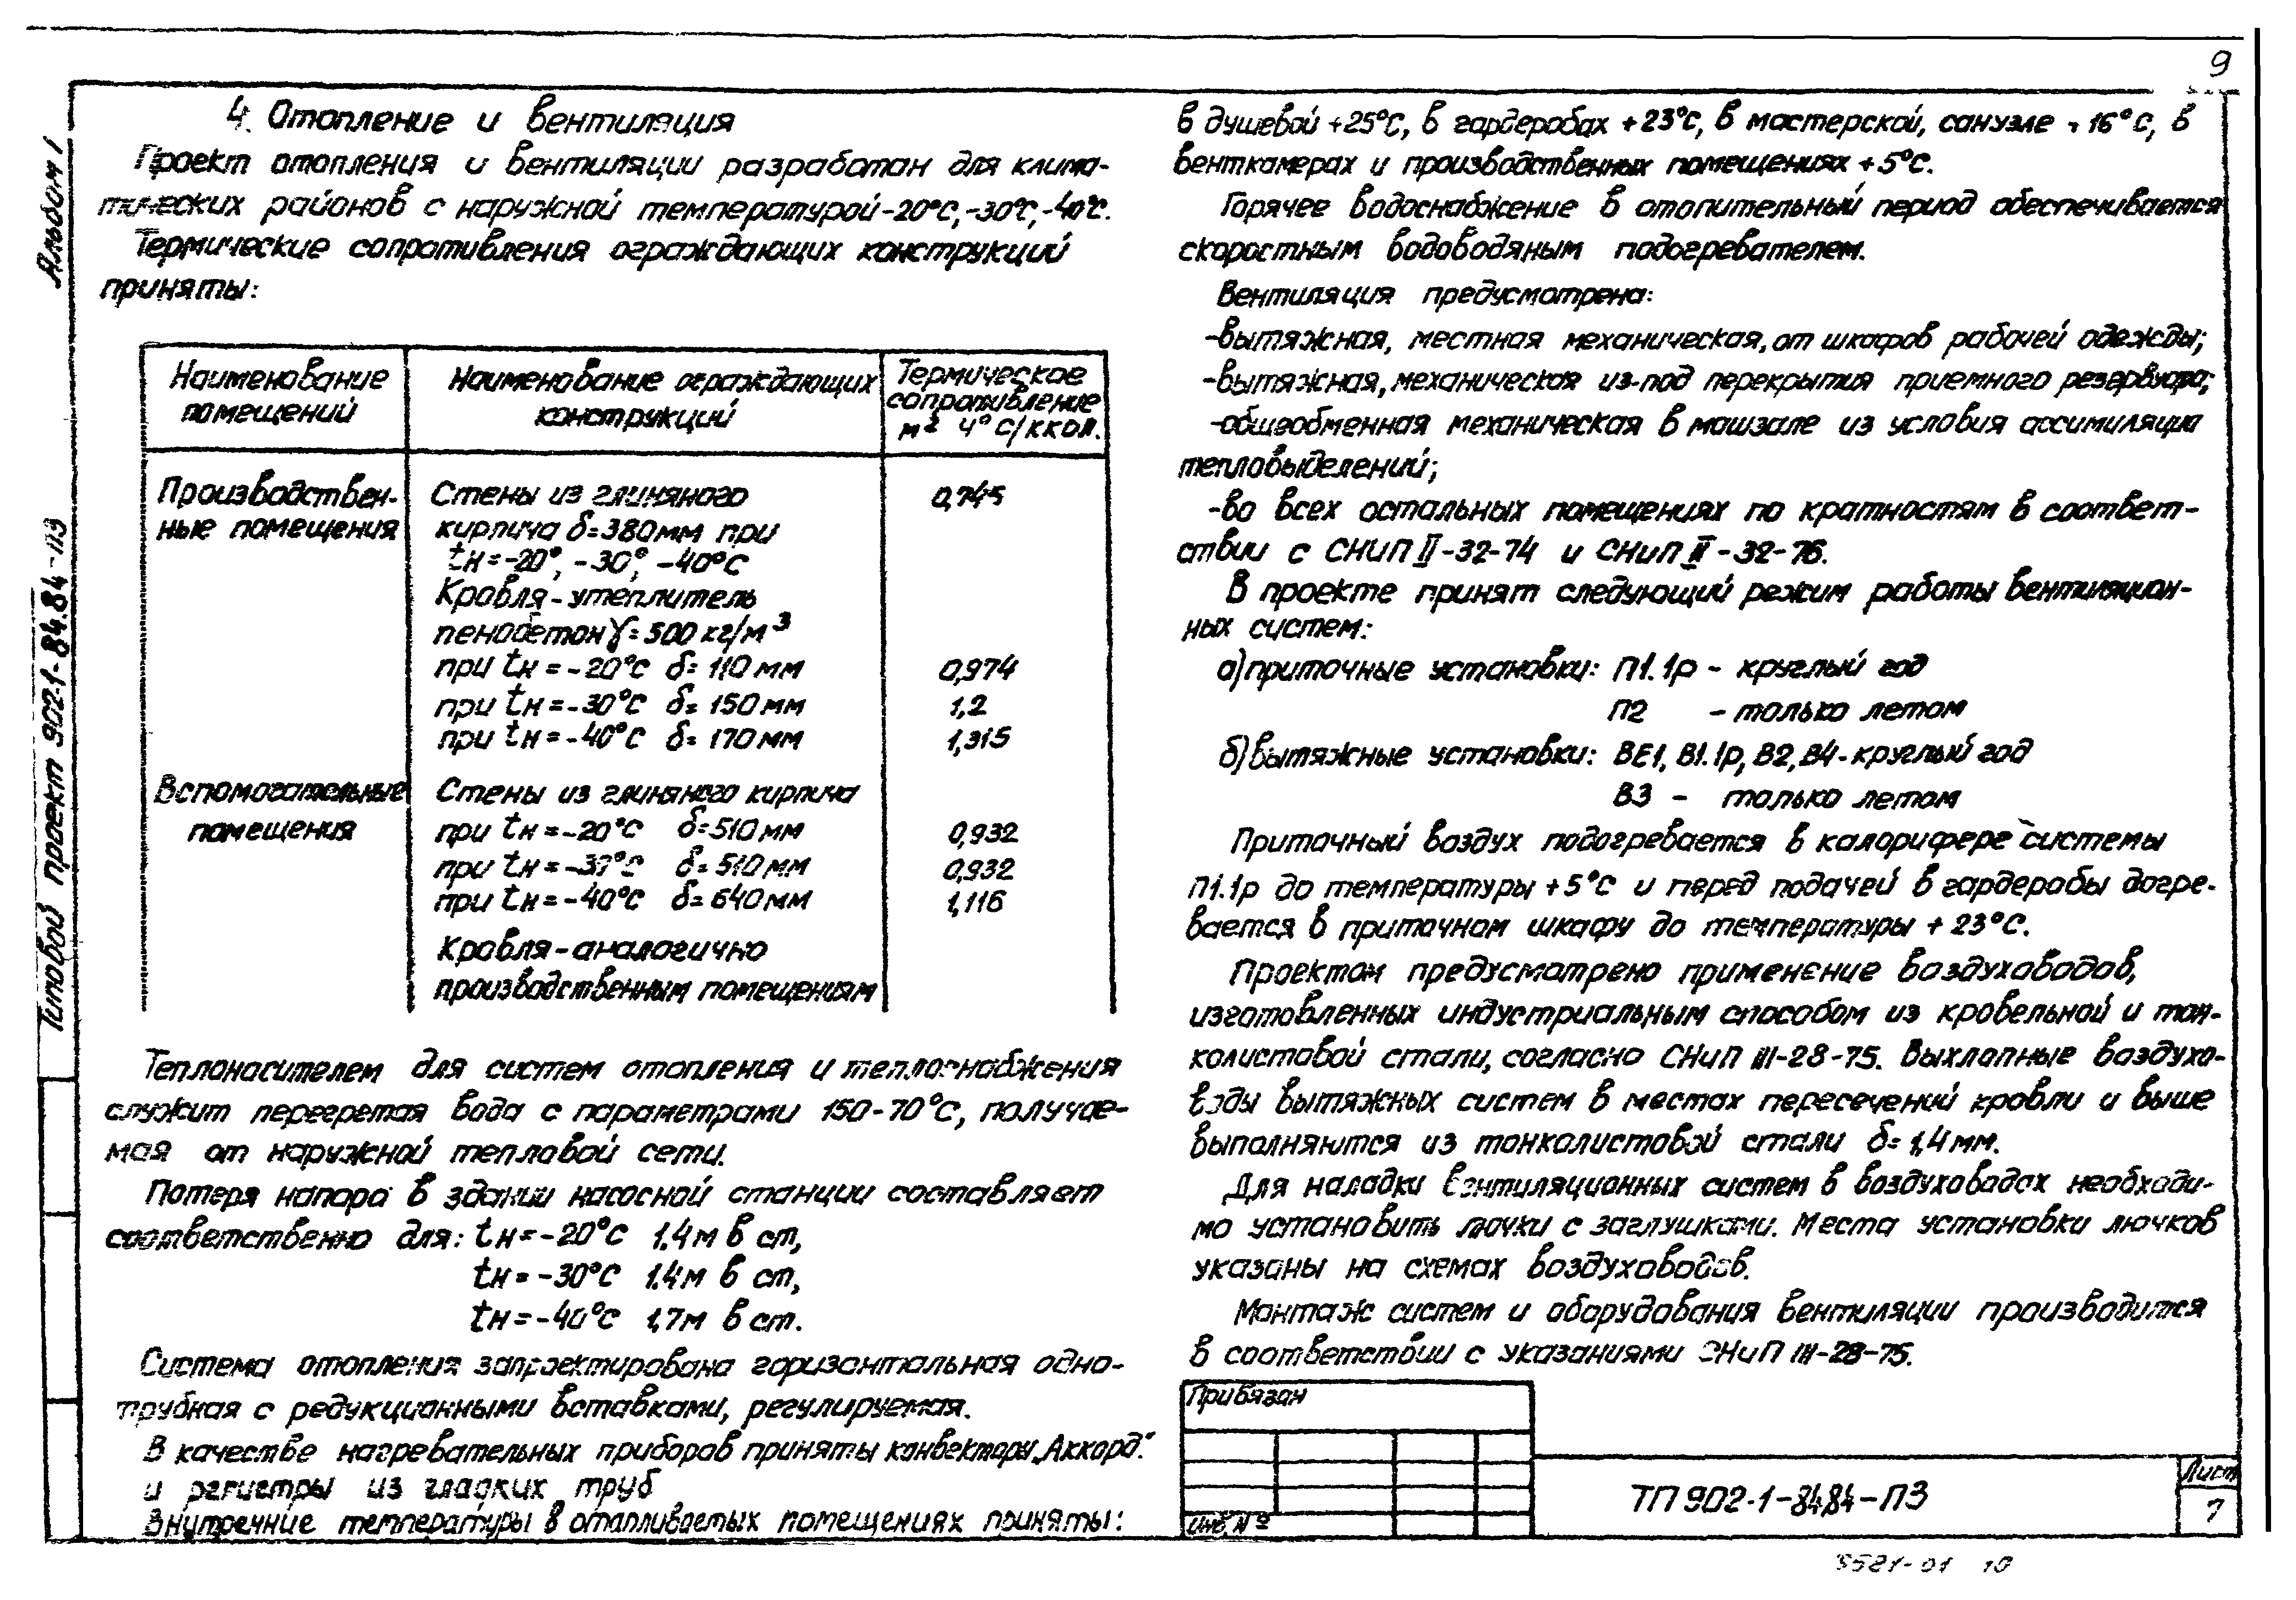 9
Альбом 1
Типовой проект 902-1-84.84-ПЗ
4. Отопление и вентиляция
Проект отопления и вентиляции разработан для клима-
тических районов с наружной температурой -20°С, -30°С, -40°С.
Термические сопротивления ограждающих конструкций
приняты:
Наименование помещений
Наименование ограждающих конструкций
Термическое сопротивление м² ч°С/ккал.
Производствен- Стены из глиняного 0,745
ные помещения кирпича δ=380мм при
tн=-20°, -30°, -40°С
Кровля-утеплитель
пенобетон γ=500 кг/м³
при tн=-20°С δ=110мм 0,974
при tн=-30°С δ=150мм 1,2
при tн=-40°С δ=170мм 1,315
Вспомогательные Стены из глиняного кирпича
помещения при tн=-20°С δ=510мм 0,932
при tн=-30°С δ=510мм 0,932
при tн=-40°С δ=640мм 1,116
Кровля-аналогично
производственным помещениям
Теплоносителем для систем отопления и теплоснабжения
служит перегретая вода с параметрами 150-70°С, получае-
мая от наружной тепловой сети.
Потеря напора в здании насосной станции составляет
соответственно для: tн=-20°С 1.4м в ст,
tн=-30°С 1.4м в ст,
tн=-40°С 1,7м в ст.
Система отопления запроектирована горизонтальная одно-
трубная с редукционными вставками, регулируемая.
В качестве нагревательных приборов приняты конвекторы „Аккорд"
и регистры из гладких труб
Внутренние температуры в отапливаемых помещениях приняты:
в душевой +25°С, в гардеробах +23°С, в мастерской, санузле +16°С, в
венткамерах и производственных помещениях +5°С.
Горячее водоснабжение в отопительный период обеспечивается
скоростным водоводяным подогревателем.
Вентиляция предусмотрена:
-вытяжная, местная механическая, от шкафов рабочей одежды;
-вытяжная, механическая из-под перекрытия приемного резервуара;
-общеобменная механическая в машзале из условия ассимиляции
тепловыделений;
-во всех остальных помещениях по кратностям в соответ-
ствии с СНиП II-32-74 и СНиП II-32-76.
В проекте принят следующий режим работы вентиляцион-
ных систем:
а) приточные установки: П1.1р - круглый год
П2 - только летом
б) вытяжные установки: ВЕ1, В1.1р, В2, В4-круглый год
В3 - только летом
Приточный воздух подогревается в калорифере системы
П1.1р до температуры +5°С и перед подачей в гардеробы догре-
вается в приточном шкафу до температуры +23°С.
Проектом предусмотрено применение воздуховодов,
изготовленных индустриальным способом из кровельной и тон-
колистовой стали, согласно СНиП III-28-75. Выхлопные воздухо-
воды вытяжных систем в местах пересечений кровли и выше
выполняются из тонколистовой стали δ=1,4мм.
Для наладки вентиляционных систем в воздуховодах необходи-
мо установить лючки с заглушками. Места установки лючков
указаны на схемах воздуховодов.
Монтаж систем и оборудования вентиляции производится
в соответствии с указаниями СНиП III-28-75.
Привязан
Инв. №
ТП 902-1-84.84-ПЗ
Лист
7
10